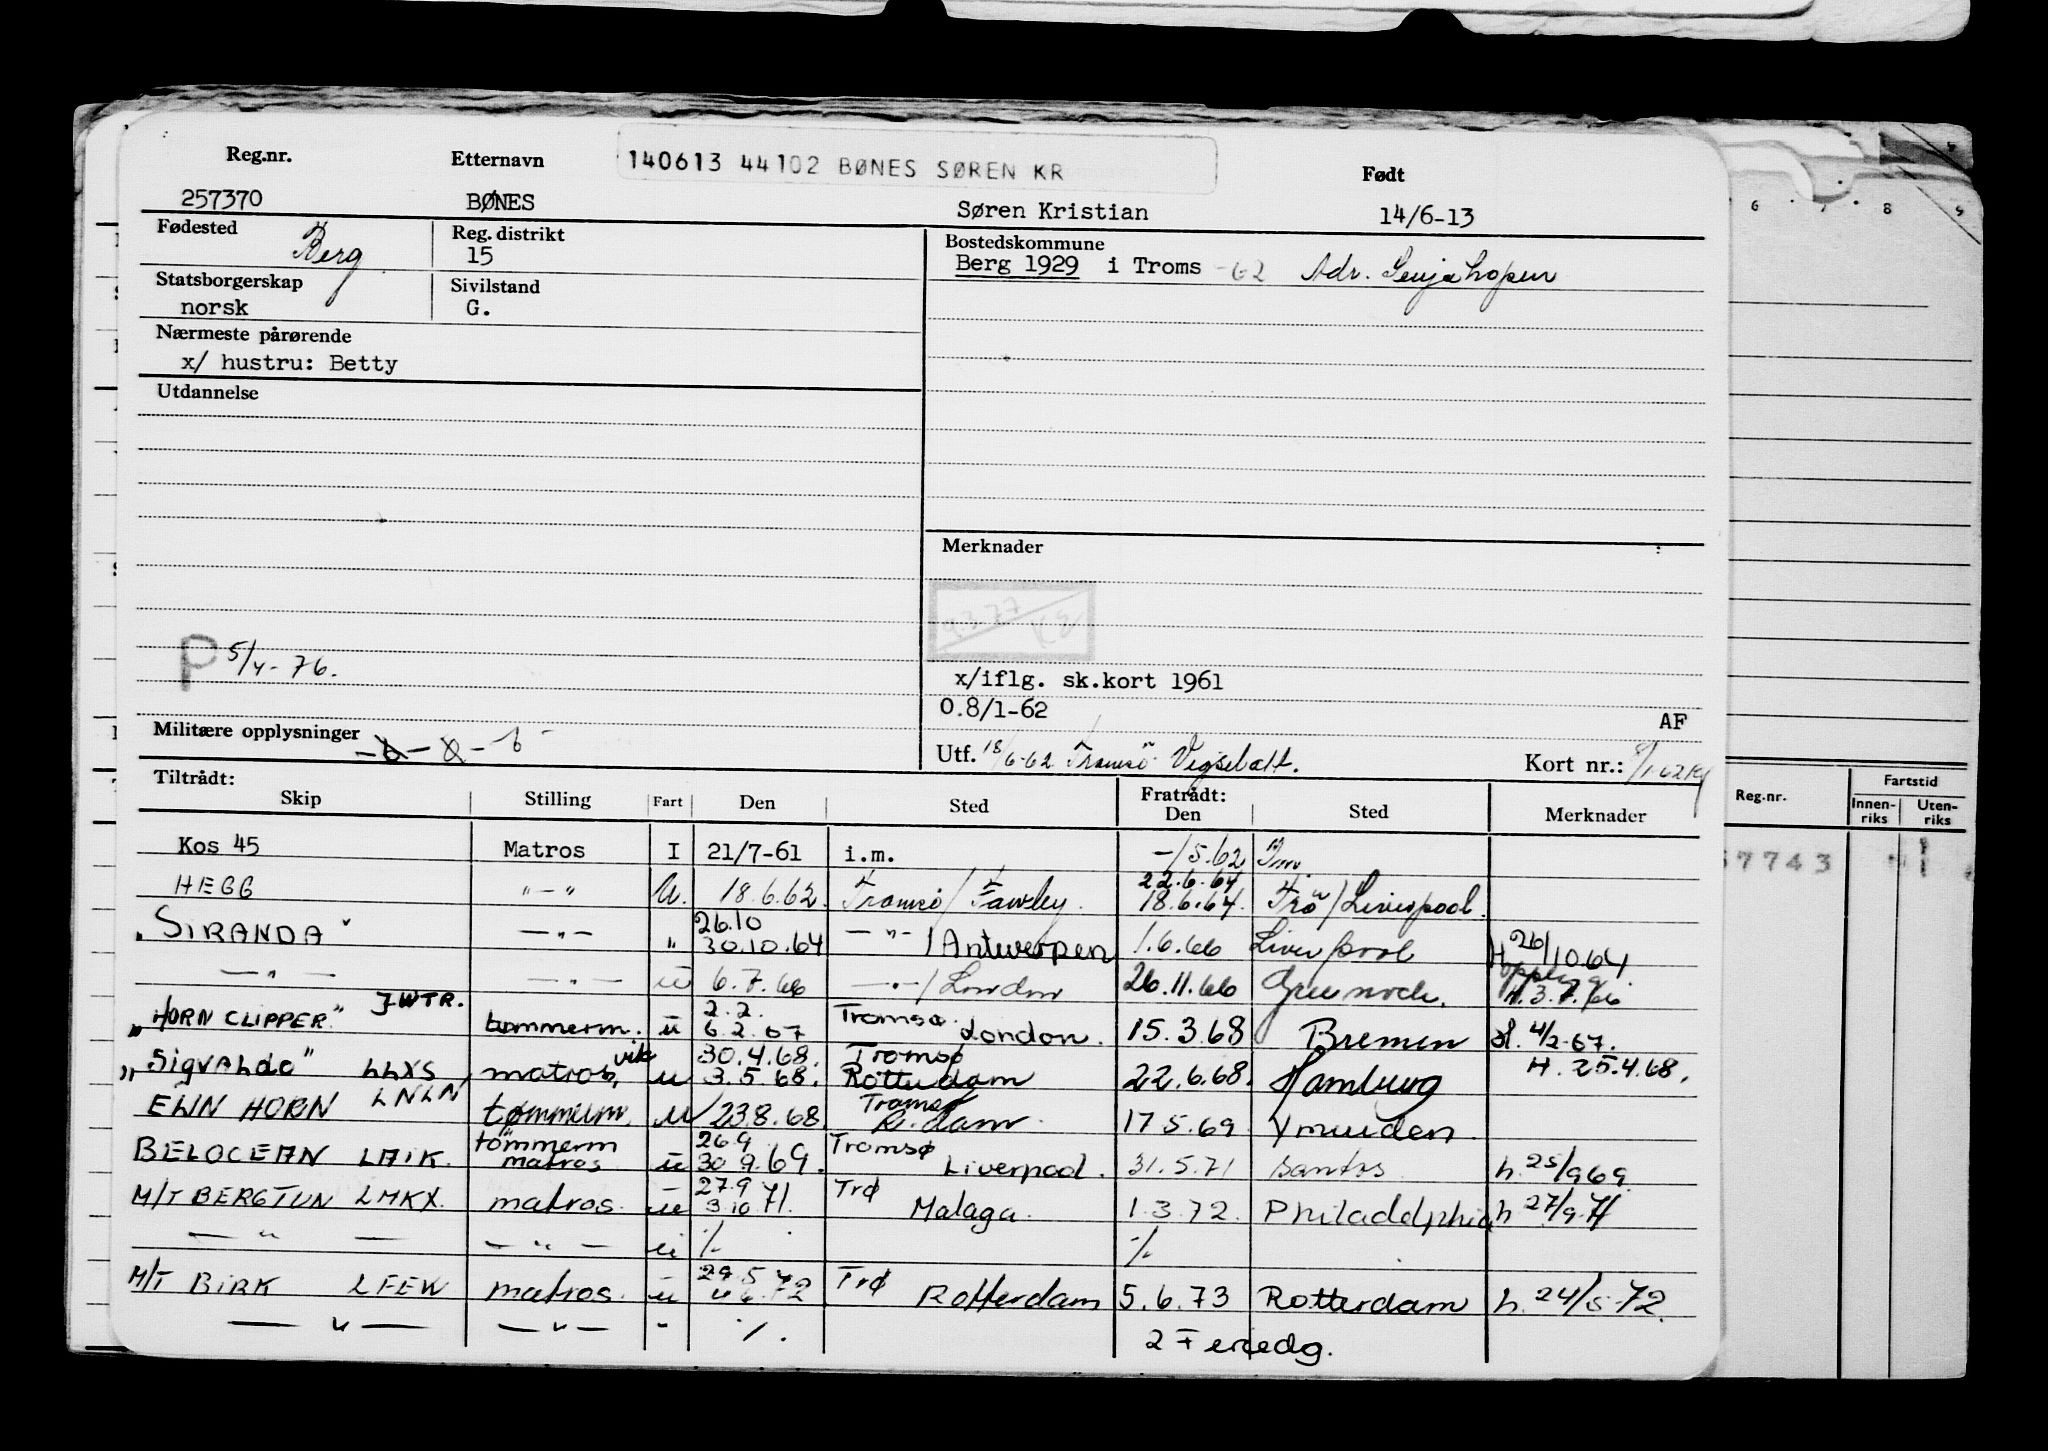 Reg.nr. Etternavn 140613 44102 BØNES SØREN KR Født
257370 BØNES Søren Kristian 14/6-13
Fødested Berg Reg. distrikt 15
Bostedskommune
Berg 1929 i Troms -62 Adr. Senjahopen
Statsborgerskap norsk Sivilstand G.
Nærmeste pårørende
x/ hustru: Betty
Utdannelse
Merknader
P 5/4-76.
x/iflg. sk.kort 1961
0.8/1-62 AF
Militære opplysninger
Utf. 18/6-62 Tromsö Kort nr.:
Tiltrådt: Fratrådt:
Skip Stilling Fart Den Sted Den Sted Merknader
Kos 45 Matros I 21/7-61 i.m. -/5.62 Im.
HEGG "-" U. 18.6.62. Tromsö / Fawley. 22.6.64 18.6.64. Trö / Liverpool.
"SIRANDA" -"- " 26.10 30.10.64 -"- / Antwerpen 1.6.66 Liverpool H 26/10 64
-"- -"- u 6.7.66 -"- / London 26.11.66 Greenock. H. 3.7.66
"HORN CLIPPER" JWTR. tømmerm. u 2.2. 6.2.67 Tromsø. London. 15.3.68 Bremen H. 4/2-67.
"Sigvaldo" LLXS matros, vik u 30.4.68. 3.5.68. Tromsø Rotterdam 22.6.68. Hamburg H. 25.4.68.
ELIN HORN LNLN tømmerm. u 23.8.68 Tromsø R.dam. 17 5.69 Ymuiden.
BELOCEAN LAIK. tömmerm matros u 26.9 30 9.69. Tromsø Liverpool. 31.5.71 Santos h. 25/9 69.
M/T BERGTUN LMKX. matros. u 27.9 3.10 71. Trø Malaga. 1.3.72. Philadelphia h 27/9.71
- " - - " - u ./. ./.
M/T BIRK LFEW matros. u 29.5 72. Trø Rotterdam 5.6.73 Rotterdam h. 24/5 72.
- " - - " - - ./. 2 Feriedg.
Reg.nr. Fartstid
Innen-riks Uten-riks
7743
6 7 8 9